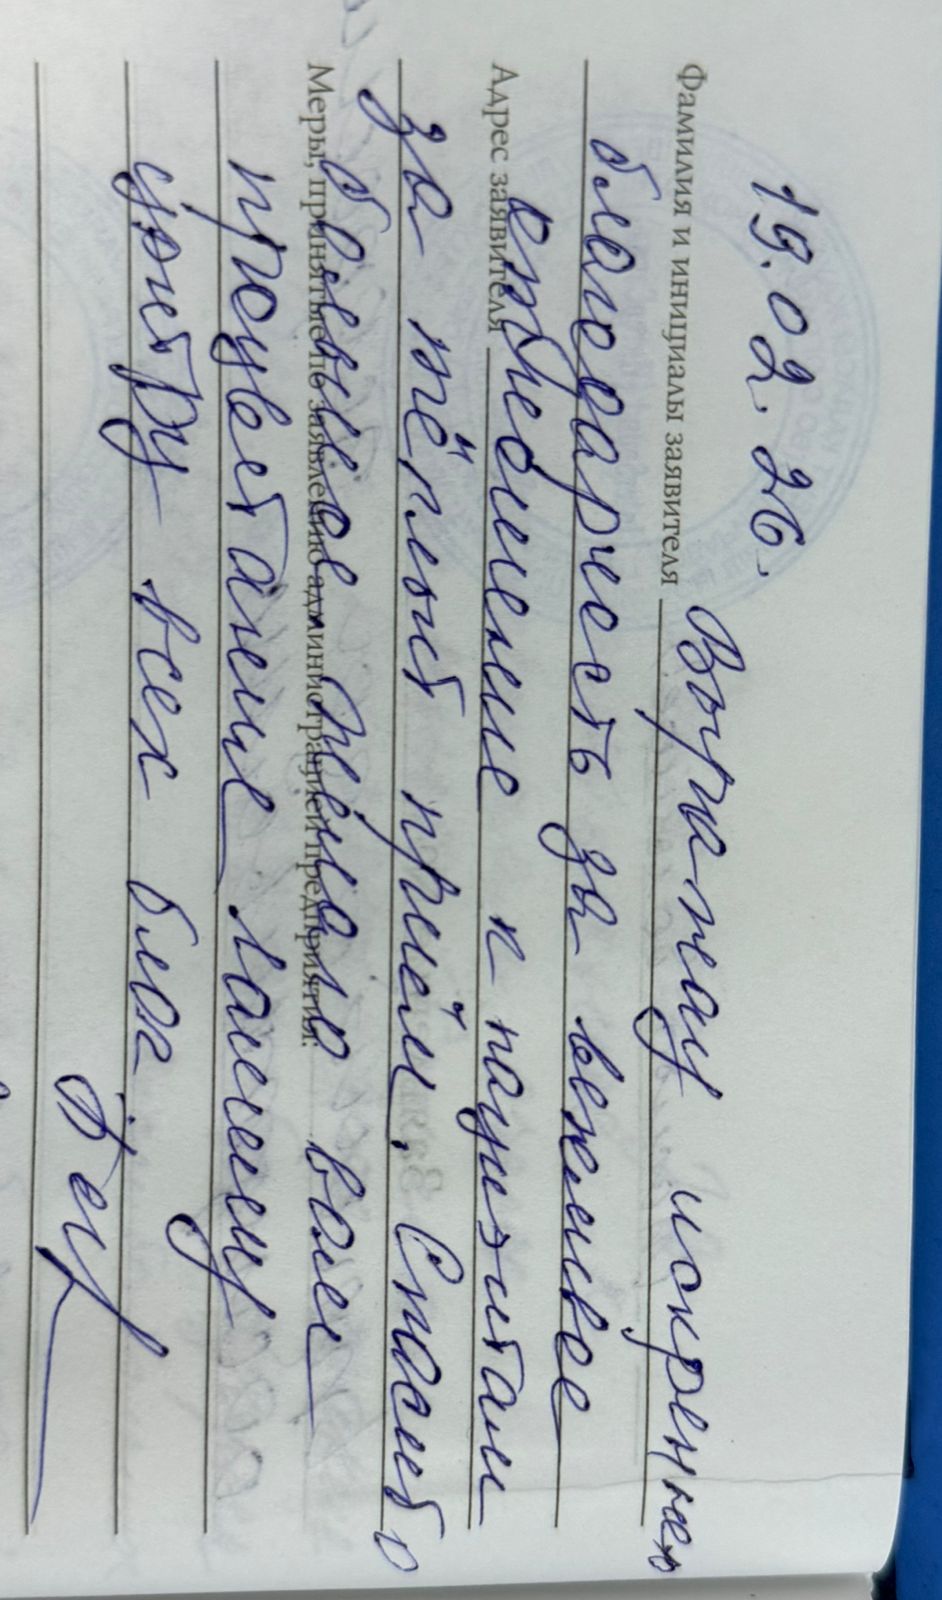 19.02.26.
Фамилия и инициалы заявителя Выражаю искреннюю
благодарность за вежливое
Адрес заявителя отношение к пациентам
за тёплый приём. Спасибо
Меры, принятые по заявлению администрацией предприятия:
большое Желаю вам
процветание вашему
центру всех благ